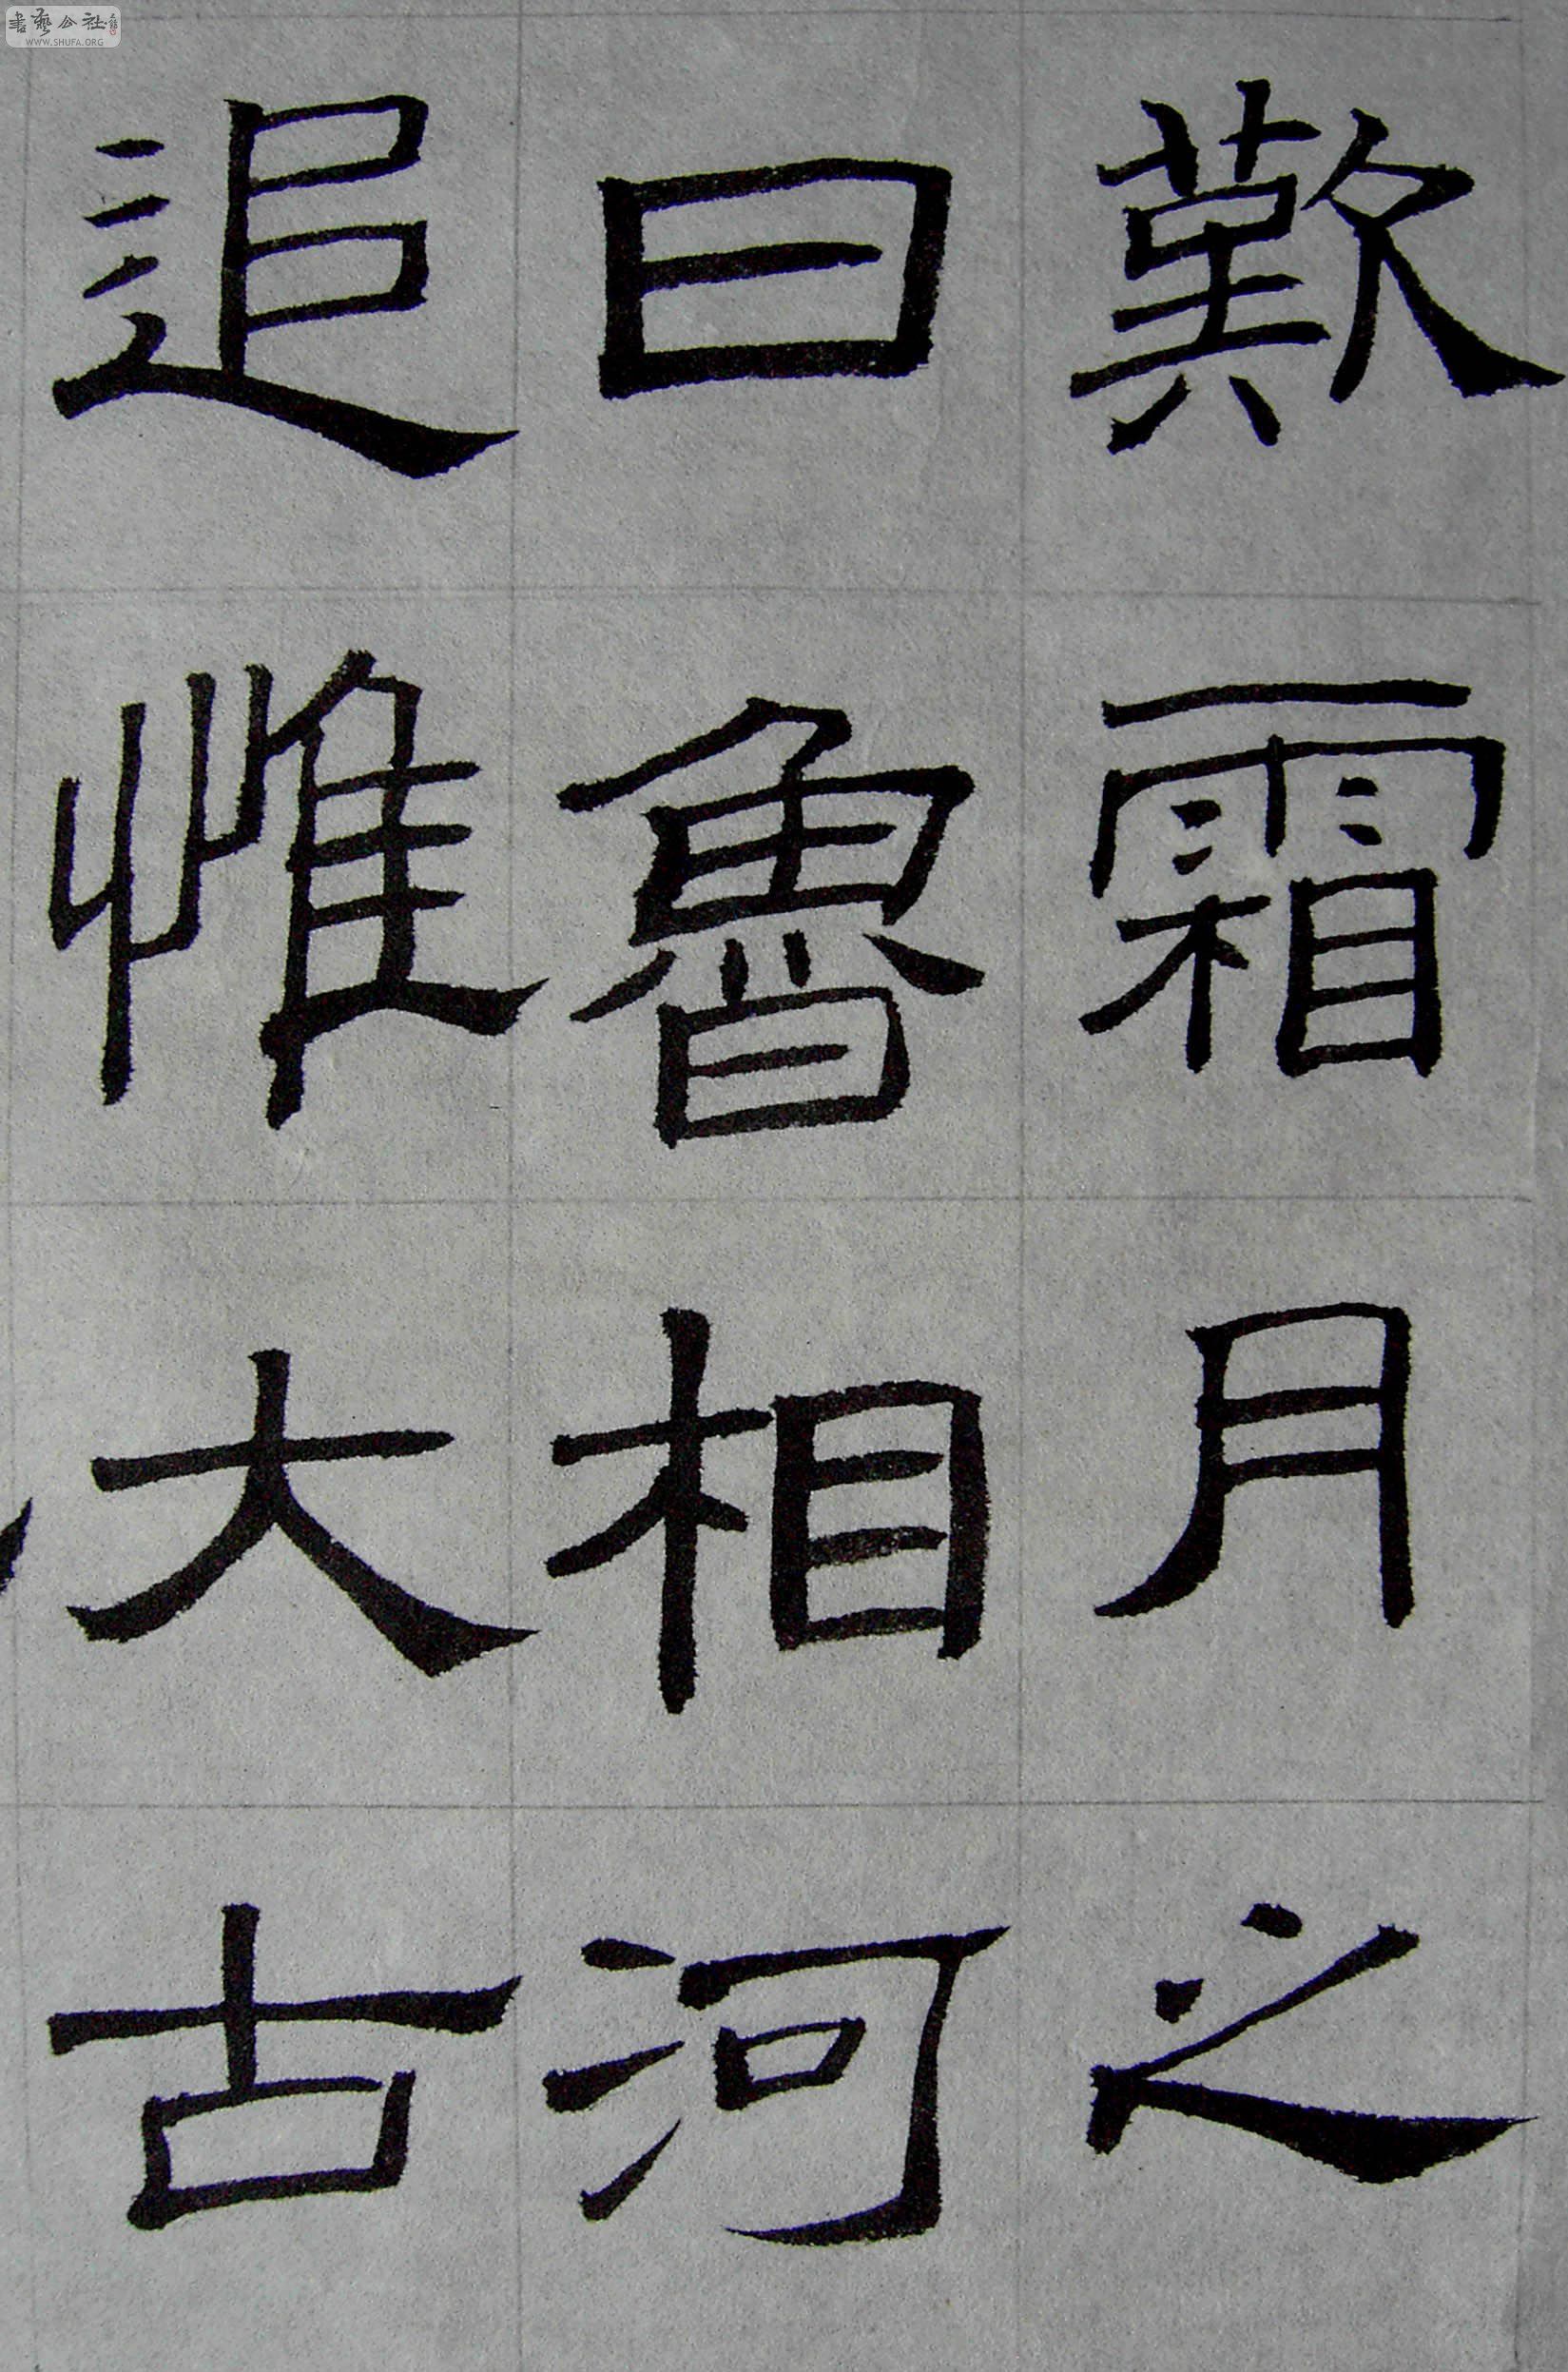 歎霜月之
曰魯相河
追惟大古
書藝公社
WWW.SHUFA.ORG